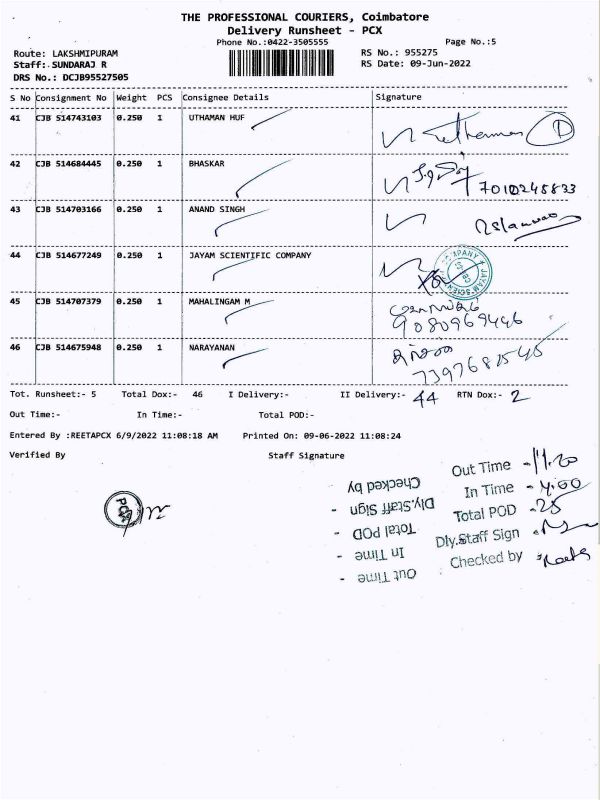 THE PROFESSIONAL COURIERS, Coimbatore
Delivery Runsheet - PCX
Phone No.:0422-3505555 Page No.:5
Route: LAKSHMIPURAM RS No.: 955275
Staff: SUNDARAJ R RS Date: 09-Jun-2022
DRS No.: DCJB95527505
S No Consignment No Weight PCS Consignee Details Signature
41 CJB 514743103 0.250 1 UTHAMAN HUF
42 CJB 514684445 0.250 1 BHASKAR 7010248833
43 CJB 514703166 0.250 1 ANAND SINGH
44 CJB 514677249 0.250 1 JAYAM SCIENTIFIC COMPANY
45 CJB 514707379 0.250 1 MAHALINGAM M
9080969446
46 CJB 514675948 0.250 1 NARAYANAN
Tot. Runsheet:- 5 Total Dox:- 46 I Delivery:- II Delivery:- 44 RTN Dox:- 2
Out Time:- In Time:- Total POD:-
Entered By :REETAPCX 6/9/2022 11:08:18 AM Printed On: 09-06-2022 11:08:24
Verified By Staff Signature
Out Time - 11.20
In Time - 4.00
Total POD - 25
Dly.Staff Sign -
Checked by -
Checked by
Dly.Staff Sign -
Total POD -
In Time -
Out Time -
PCX